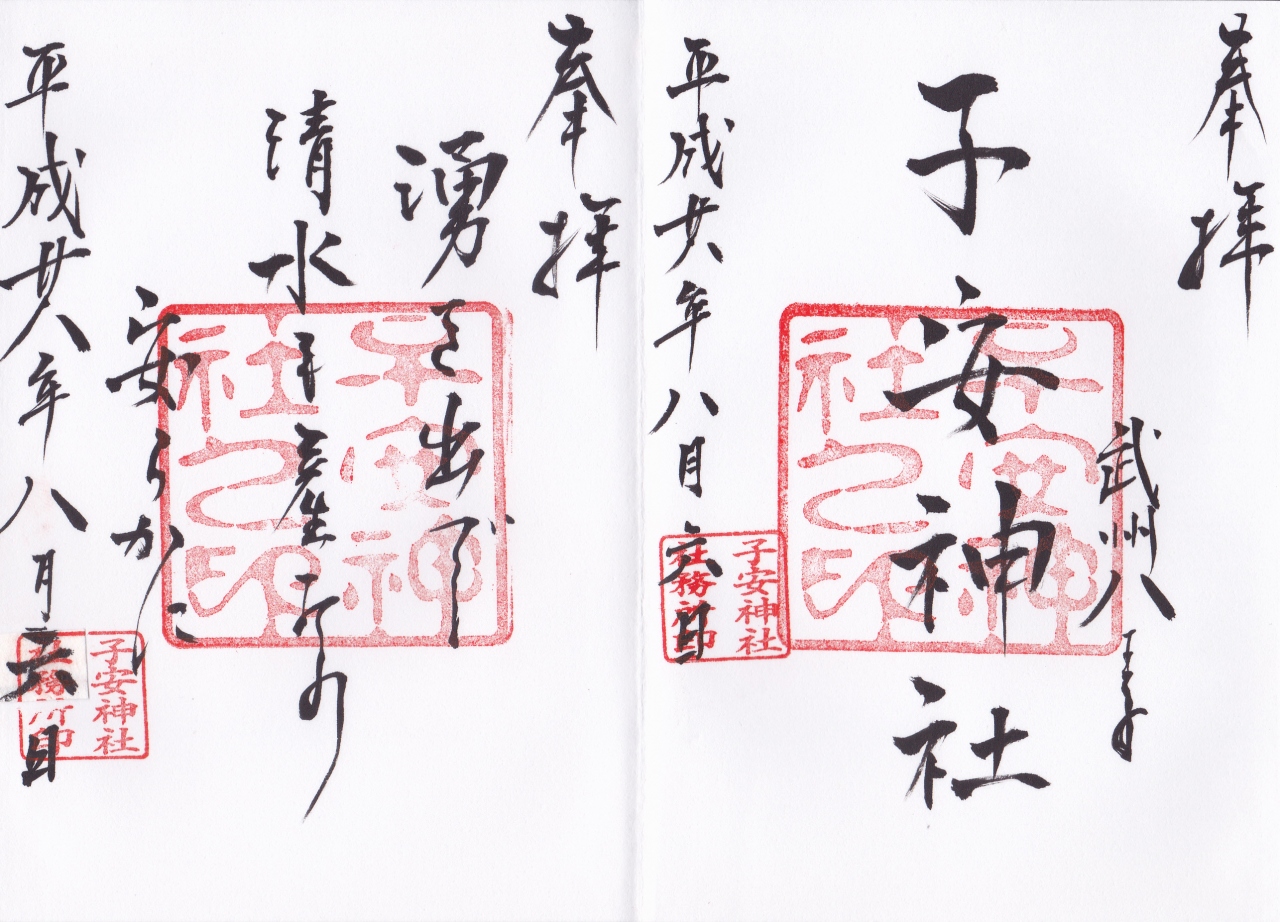 奉拝
武州八王子
子安神社
子安神社之印
平成廿八年八月六日
子安神社
社務所印
奉拝
湧き出づ
清水 産子の
安らかに
子安神社之印
平成廿八年八月六日
子安神社
社務所印